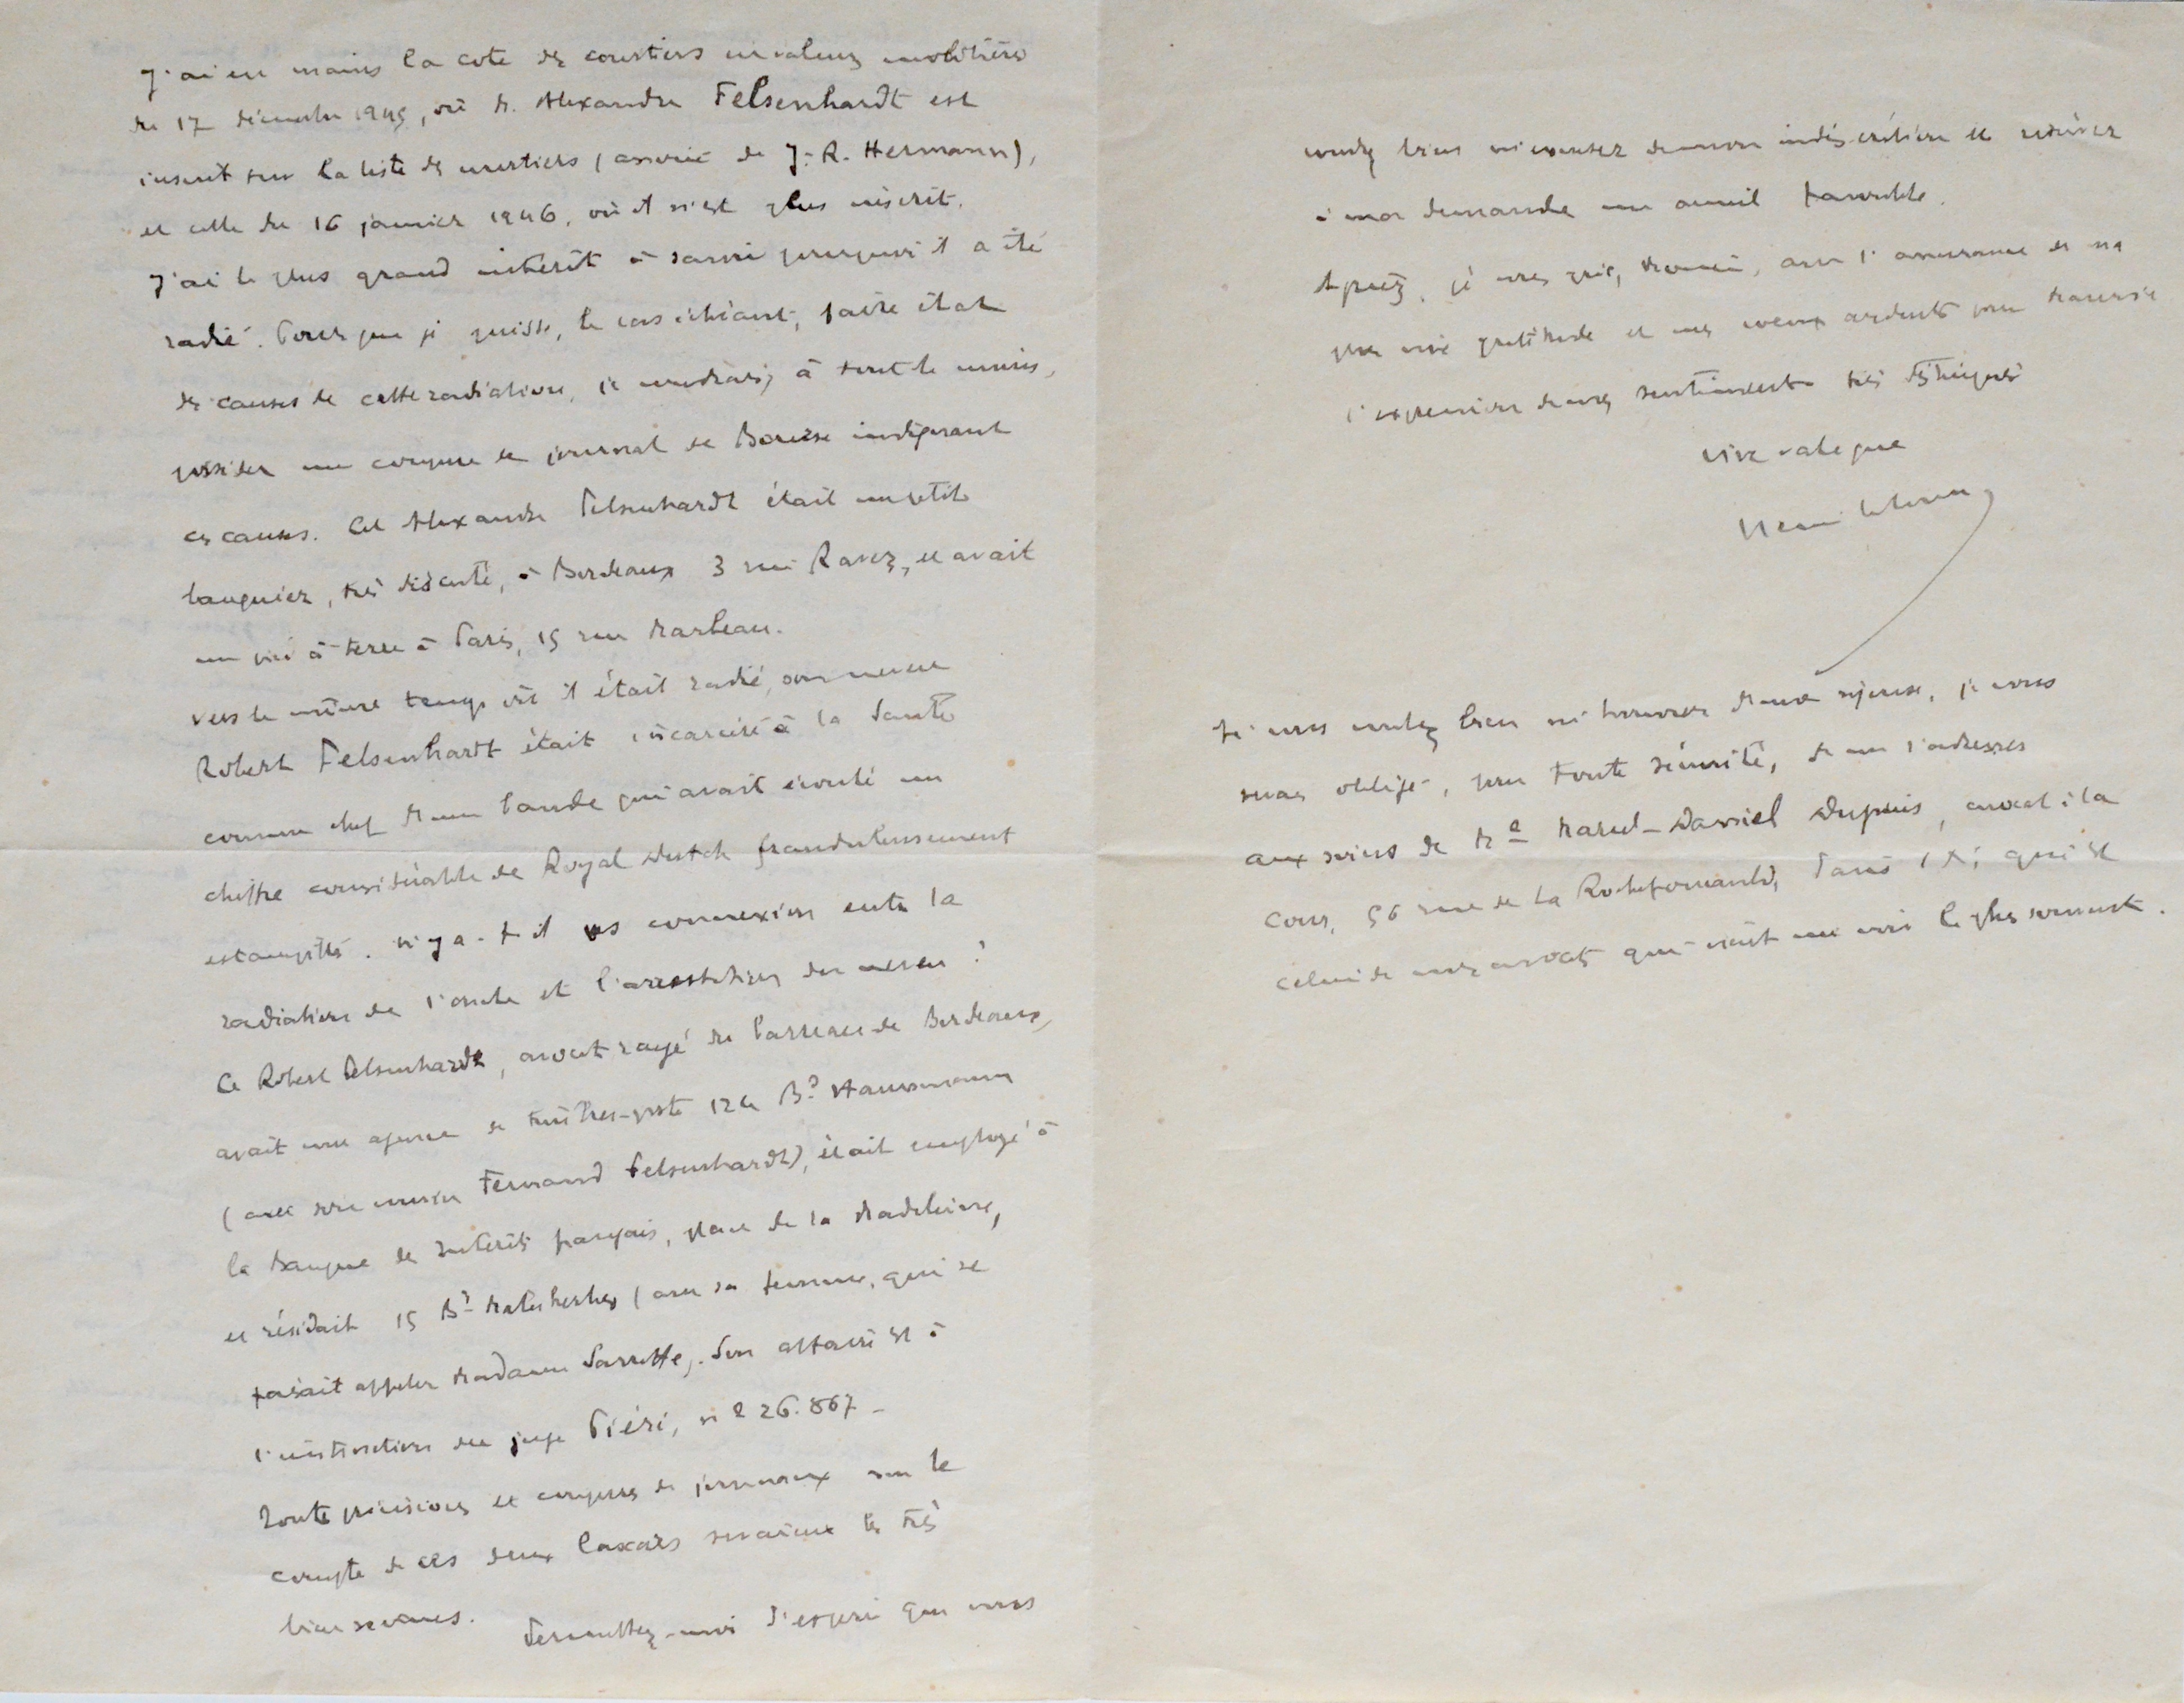 J'ai en mains la cote des courtiers en valeurs mobilières
du 17 décembre 1945, où M. Alexandre Felsenhardt est
inscrit sur la liste des courtiers (associé de J.-R. Hermann),
et celle du 16 janvier 1946, où il n'est plus inscrit.
J'ai le plus grand intérêt à savoir pourquoi il a été
radié. Pour que je puisse, le cas échéant, faire état
des causes de cette radiation, je voudrais, à tout le moins,
posséder une coupure de journal de Bourse indiquant
ces causes. Cet Alexandre Felsenhardt était un petit
banquier, très discuté, à Bordeaux 3 rue Ravez, et avait
un pied à terre à Paris, 15 rue Marbeau.
Vers le même temps où il était radié, son neveu
Robert Felsenhardt était incarcéré à la Santé
comme chef d'une bande qui avait écoulé un
chiffre considérable de Royal Dutch frauduleusement
estampillés. N'y a-t-il pas connexion entre la
radiation de l'oncle et l'arrestation du neveu ?
Ce Robert Felsenhardt, avocat rayé du barreau de Bordeaux,
avait une agence de timbres-poste 124 Bd Haussmann
(avec son cousin Fernand Felsenhardt), était employé à
la Banque des Intérêts français, place de la Madeleine,
et résidait 15 Bd Malesherbes (avec sa femme, qui se
faisait appeler Madame Sarrette). Son affaire est à
l'instruction du juge Piéri, n° 26.867 -
Toutes précisions et coupures de journaux sur le
compte de ces deux lascars seraient les très
bienvenues. Permettez-moi d'espérer que vous
voudrez bien m'excuser de mon indiscrétion et réserver
à ma demande un accueil favorable.
Agréez, je vous prie, Monsieur, avec l'assurance de ma
plus vive gratitude et mes voeux ardents pour
l'expression de mes sentiments très distingués
Henri
Si vous voulez bien m'honorer d'une réponse, je vous
serais obligé, pour toute sécurité, de me l'adresser
aux soins de Me Marcel-Daniel Dupuis, avocat à la
Cour, 56 rue de La Rochefoucauld, Paris IX, qui est
celui de mes avocats qui vient me voir le plus souvent.